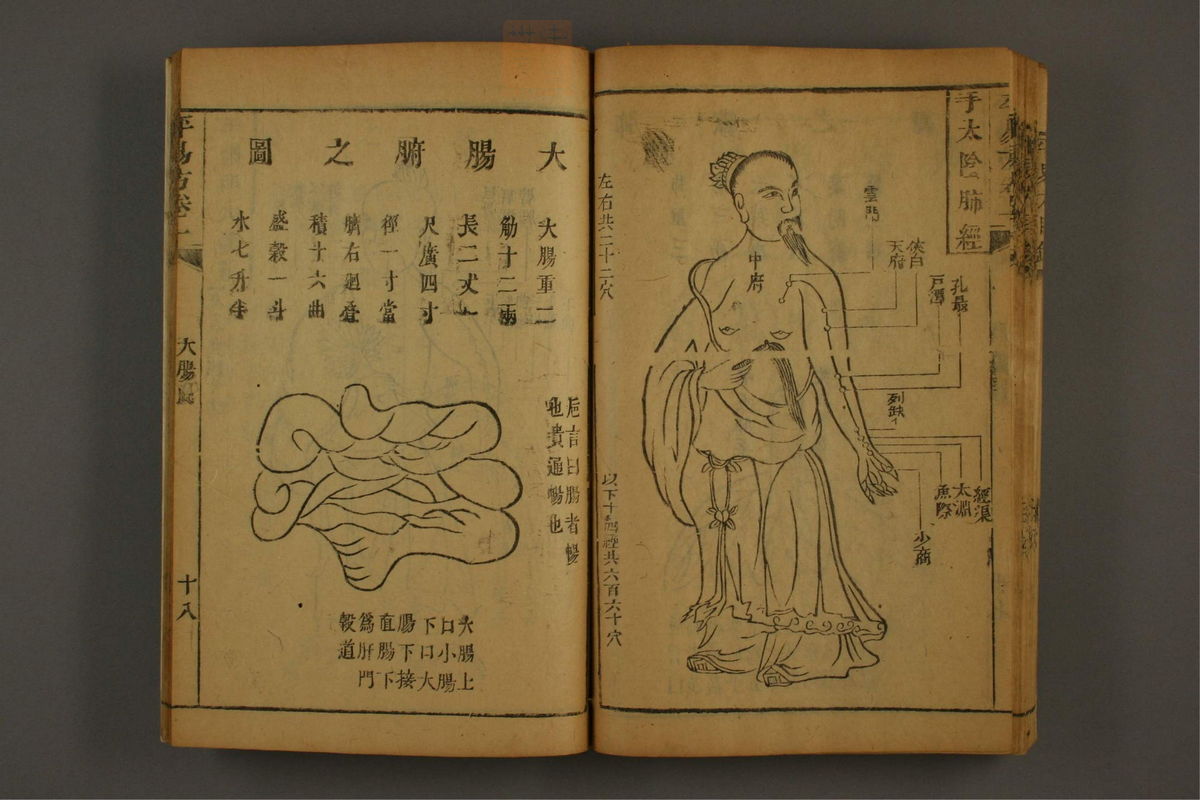 手太陰肺經
雲門
中府
俠白
天府
孔最
戸澤
列缺
經渠
太淵
魚際
少商
左右共二十二穴
以下十四經共六百六十穴
大腸腑之圖
大腸重二
觔十二兩
長二丈一
尺廣四寸
徑一寸當
臍右廻叠
積十六曲
盛穀一斗
水七升半
巵言曰腸者暢
也貴通暢也
大腸上
口小腸
下口大
腸下接
直腸下
爲肝門
穀道
平易方卷一
大腸
十八